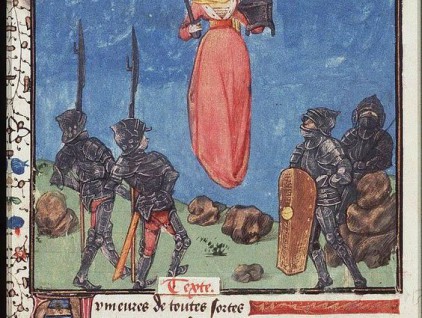 Texte.
Armeures de toutes sortes